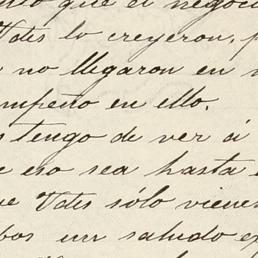 que el negoci
Vdes lo creyeron, p
no llegaron en n
mpeño en ello.
tengo de ver á
e eso sea hasta e
ue Vdes sólo viene
bos un saludo ex